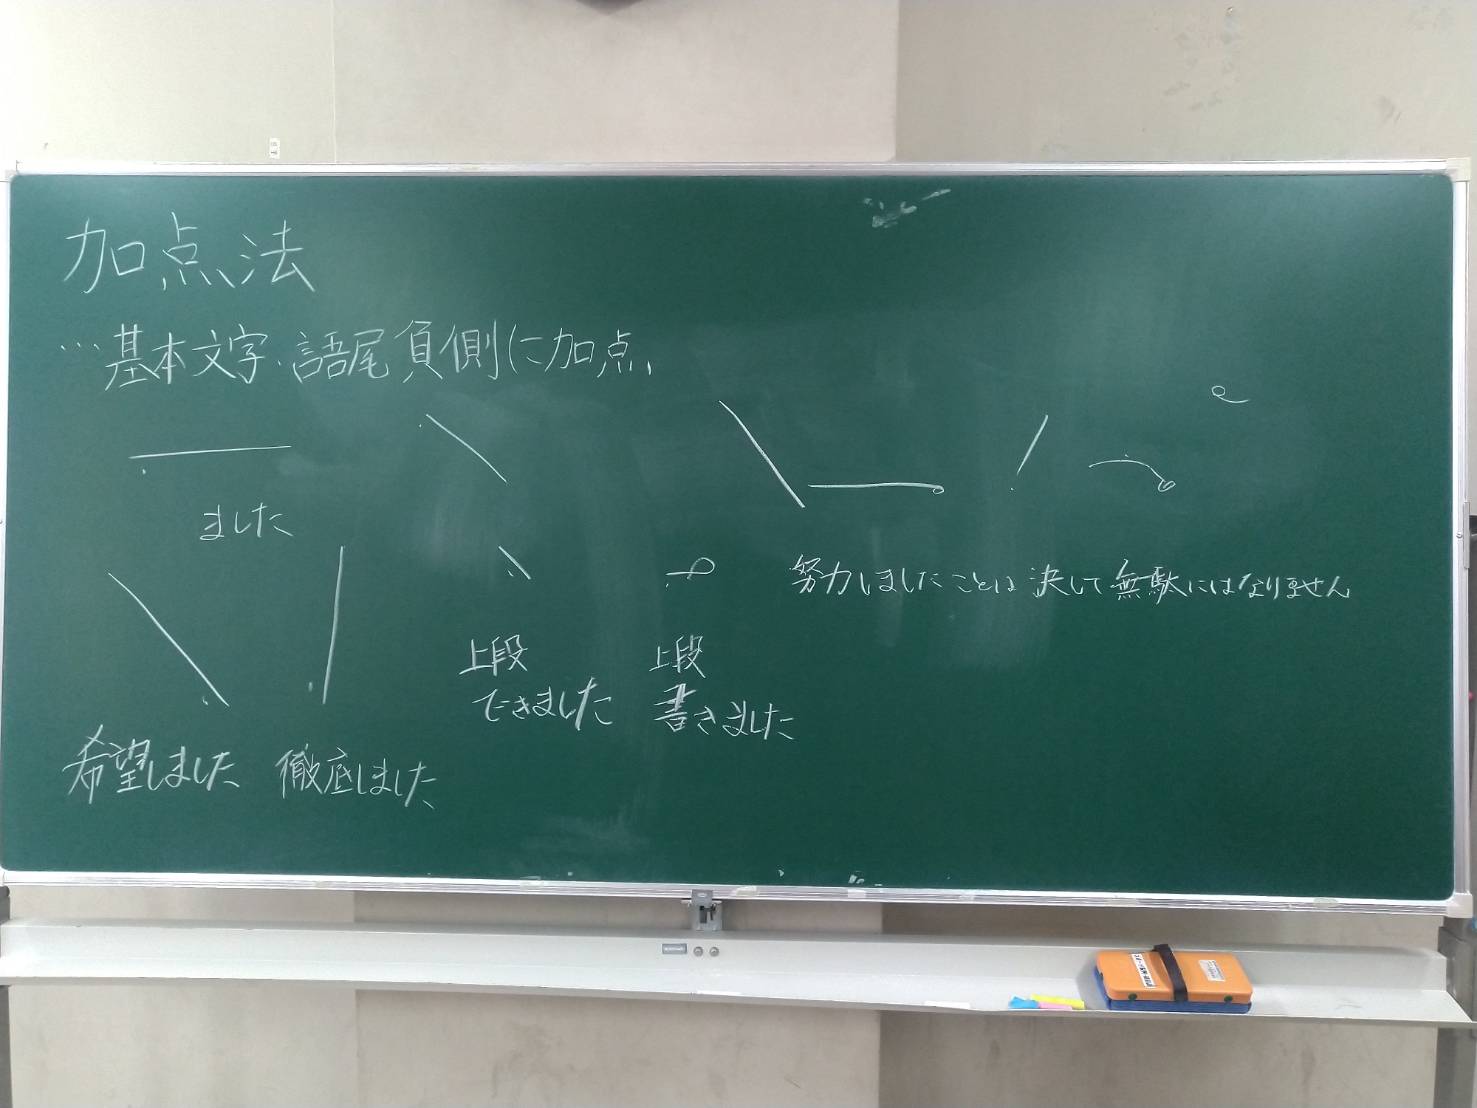 加点法
…基本文字、語尾負側に加点
ました
希望しました
徹底しました
上段
できました
上段
書きました
努力しましたことは 決して無駄にはなりません